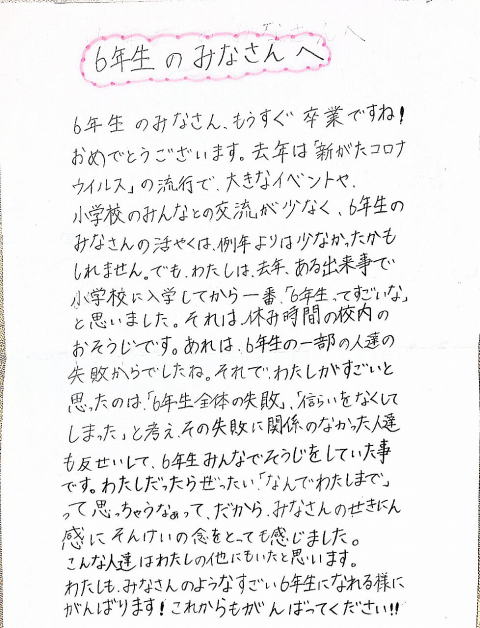 6年生のみなさんへ
6年生のみなさん、もうすぐ卒業ですね!
おめでとうございます。去年は「新がたコロナ
ウイルス」の流行で、大きなイベントや、
小学校のみんなとの交流が少なく、6年生の
みなさんの活やくは、例年よりは少なかったかも
しれません。でも、わたしは、去年、ある出来事で
小学校に入学してから一番、「6年生ってすごいな」
と思いました。それは、休み時間の校内の
おそうじです。あれは、6年生の一部の人達の
失敗からでしたね。それで、わたしがすごいと
思ったのは、「6年生全体の失敗」、「信らいをなくして
しまった」と考え、その失敗に関係のなかった人達
も反せいして、6年生みんなでそうじをしていた事
です。わたしだったらぜったい「なんでわたしまで」
って思っちゃうなぁって、だから、みなさんのせきにん
感にそんけいの念をとっても感じました。
こんな人達はわたしの他にもいたと思います。
わたしも、みなさんのようなすごい6年生になれる様に
がんばります!これからもがんばってください!!